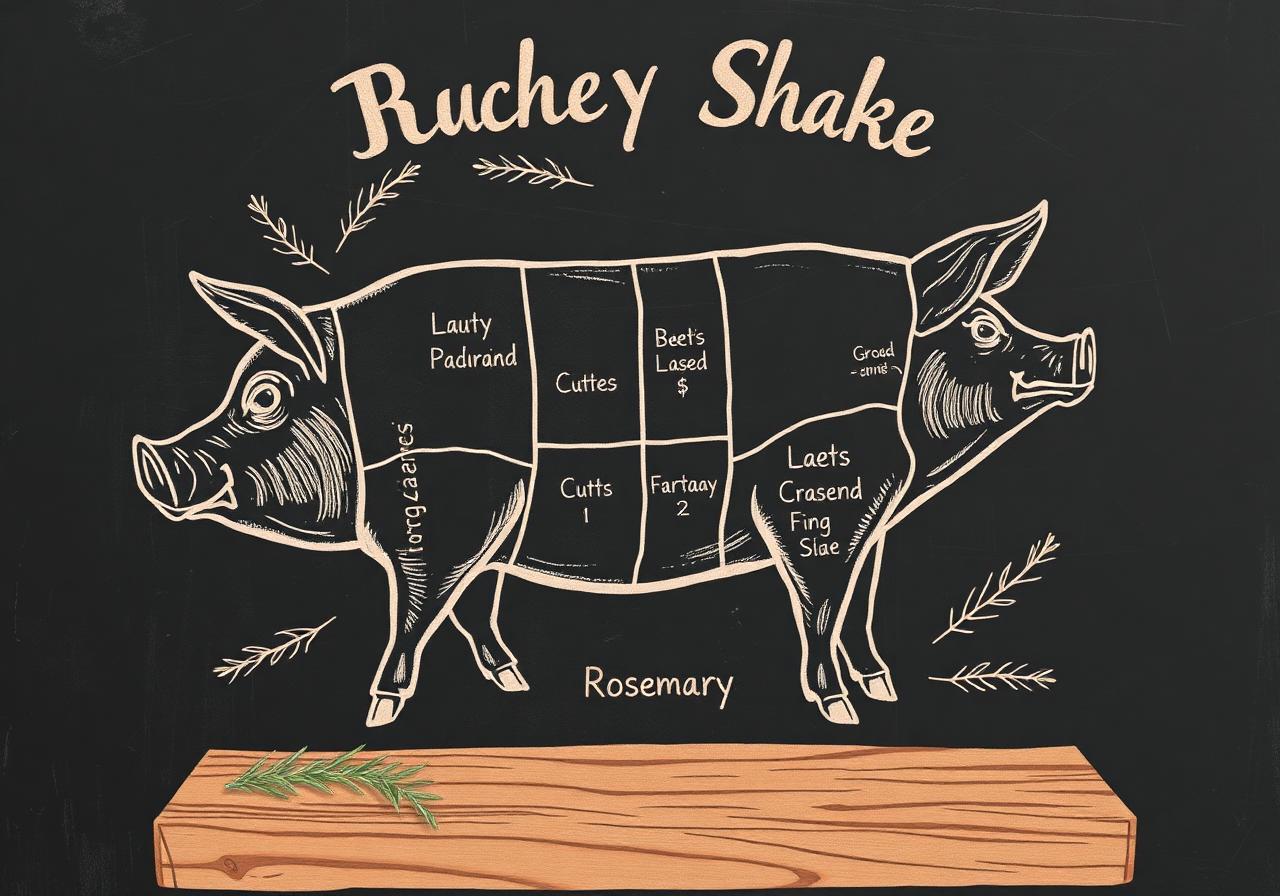 Ruchey Shake
Lauty
Padirand
Cuttes
Beet's
Lased
$
Groed
Cutts
1
Fartaay
2
Laets
Crasend
Fing
Slae
Rosemary